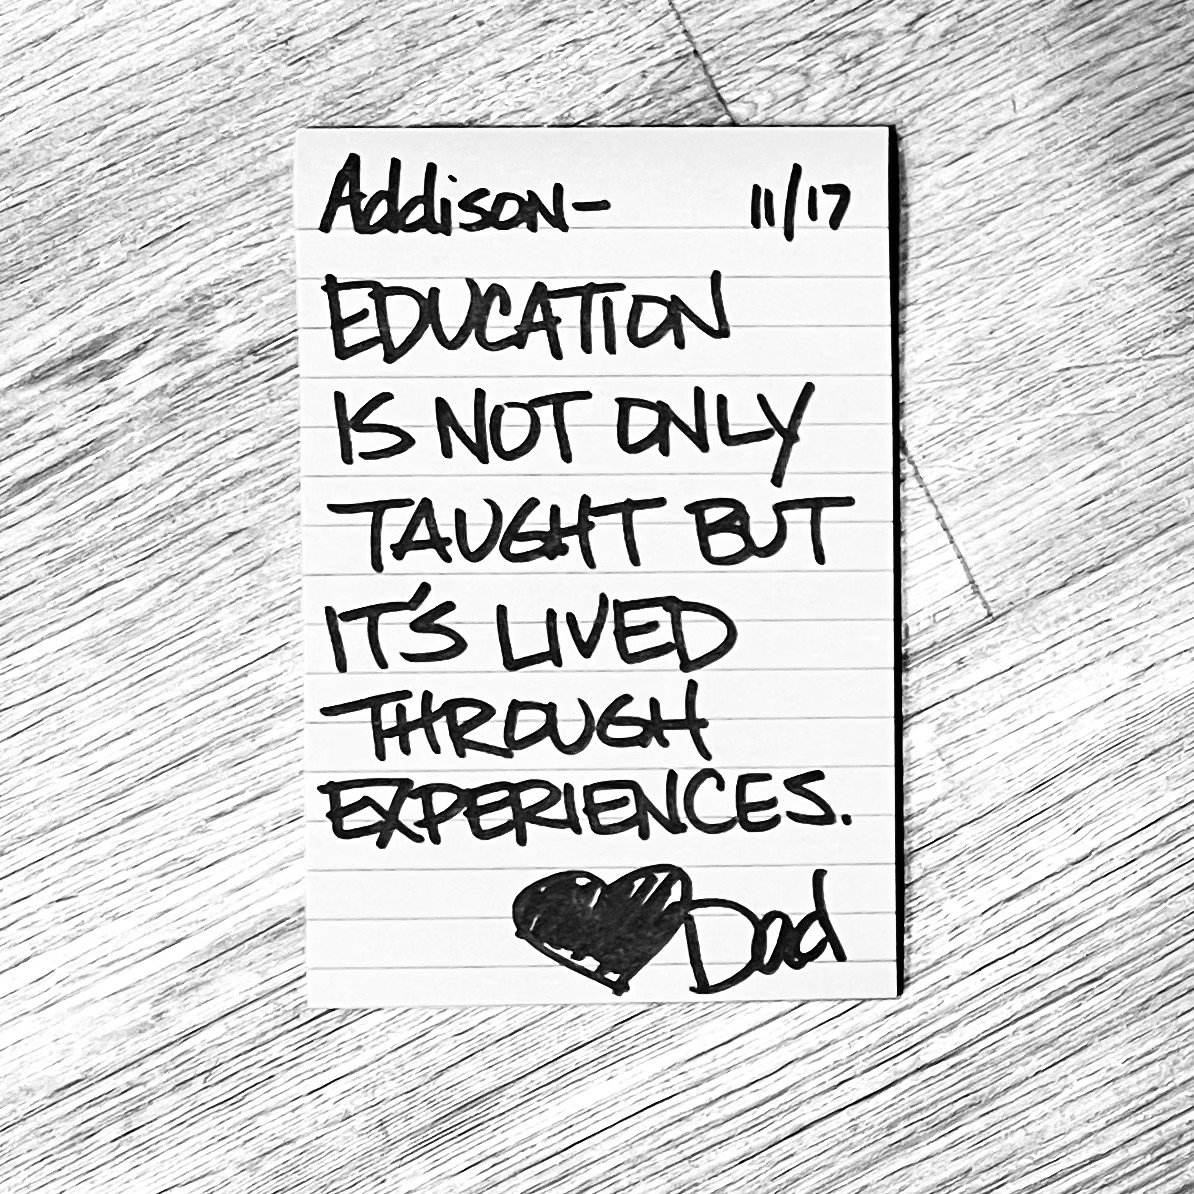 Addison- 11/17
EDUCATION
IS NOT ONLY
TAUGHT BUT
IT'S LIVED
THROUGH
EXPERIENCES.
Dad